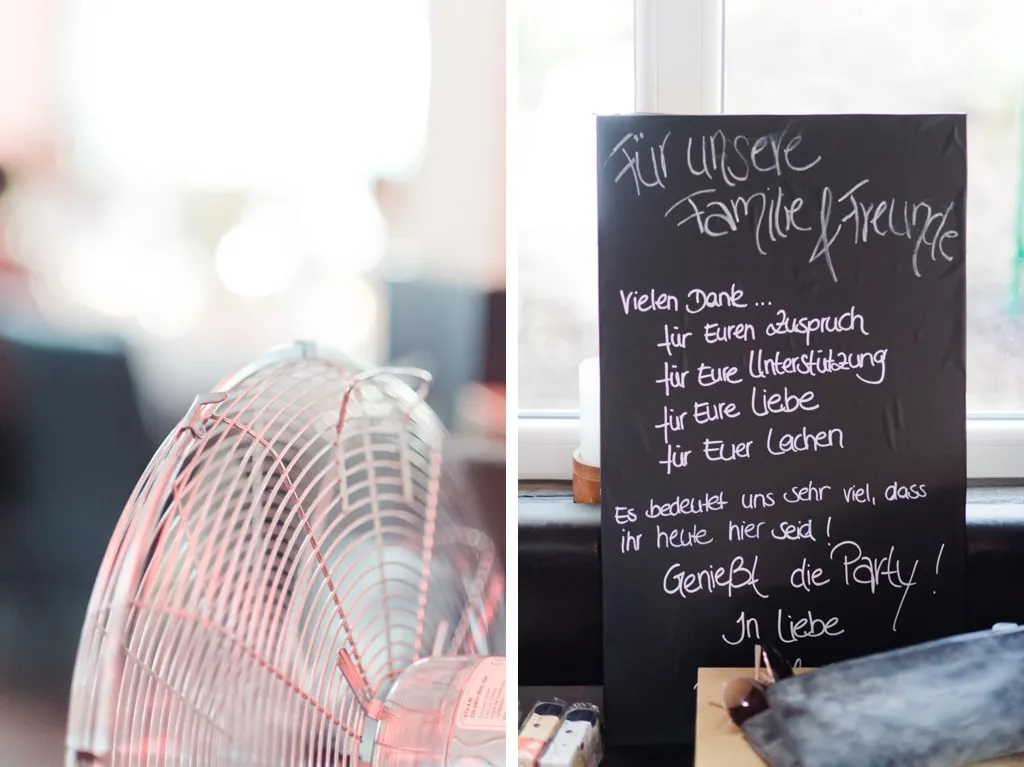 Für unsere
Familie & Freunde
Vielen Dank ...
für Euren Zuspruch
für Eure Unterstützung
für Eure Liebe
für Euer Lachen
Es bedeutet uns sehr viel, dass
ihr heute hier seid !
Genießt die Party !
In Liebe